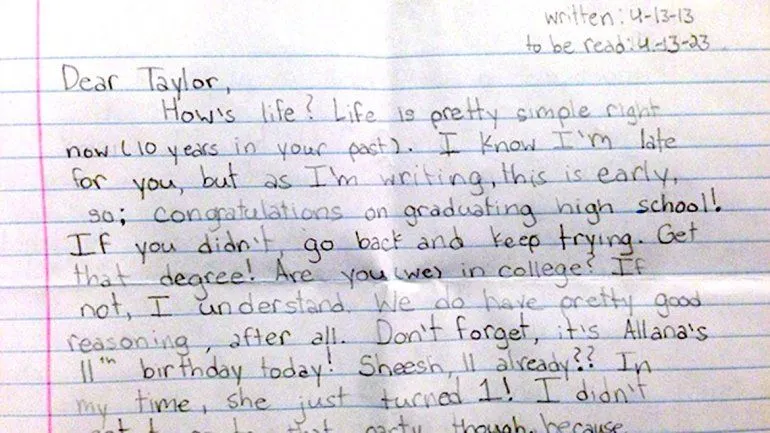 written: 4-13-13
to be read: 4-13-23
Dear Taylor,
How's life? Life is pretty simple right
now (10 years in your past). I know I'm late
for you, but as I'm writing, this is early,
so; congratulations on graduating high school!
If you didn't, go back and keep trying. Get
that degree! Are you (we) in college? If
not, I understand. We do have pretty good
reasoning, after all. Don't forget, it's Allana's
11th birthday today! Sheesh, 11 already?? In
my time, she just turned 1! I didn't
get to go to that party though, because